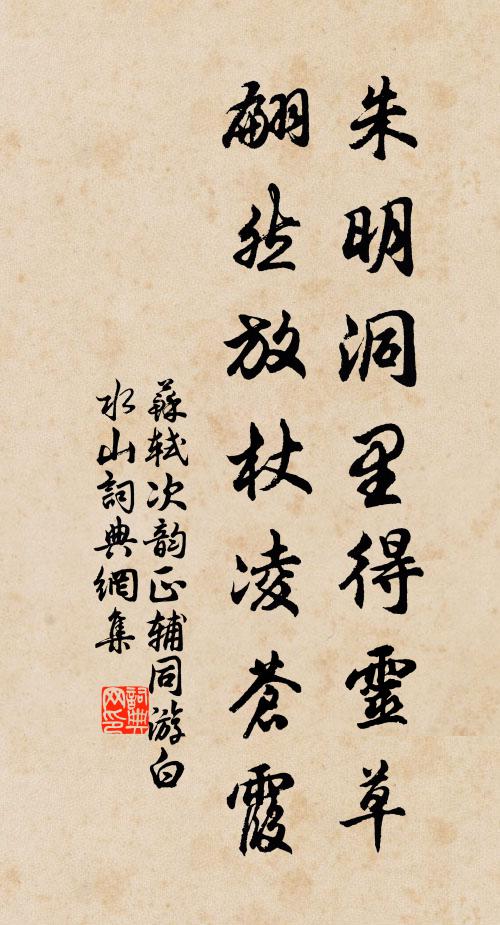 朱明洞里得靈草
翩然放杖凌蒼霞
蘇軾次韵正輔同游白
水山詞典網集
詞典
网印